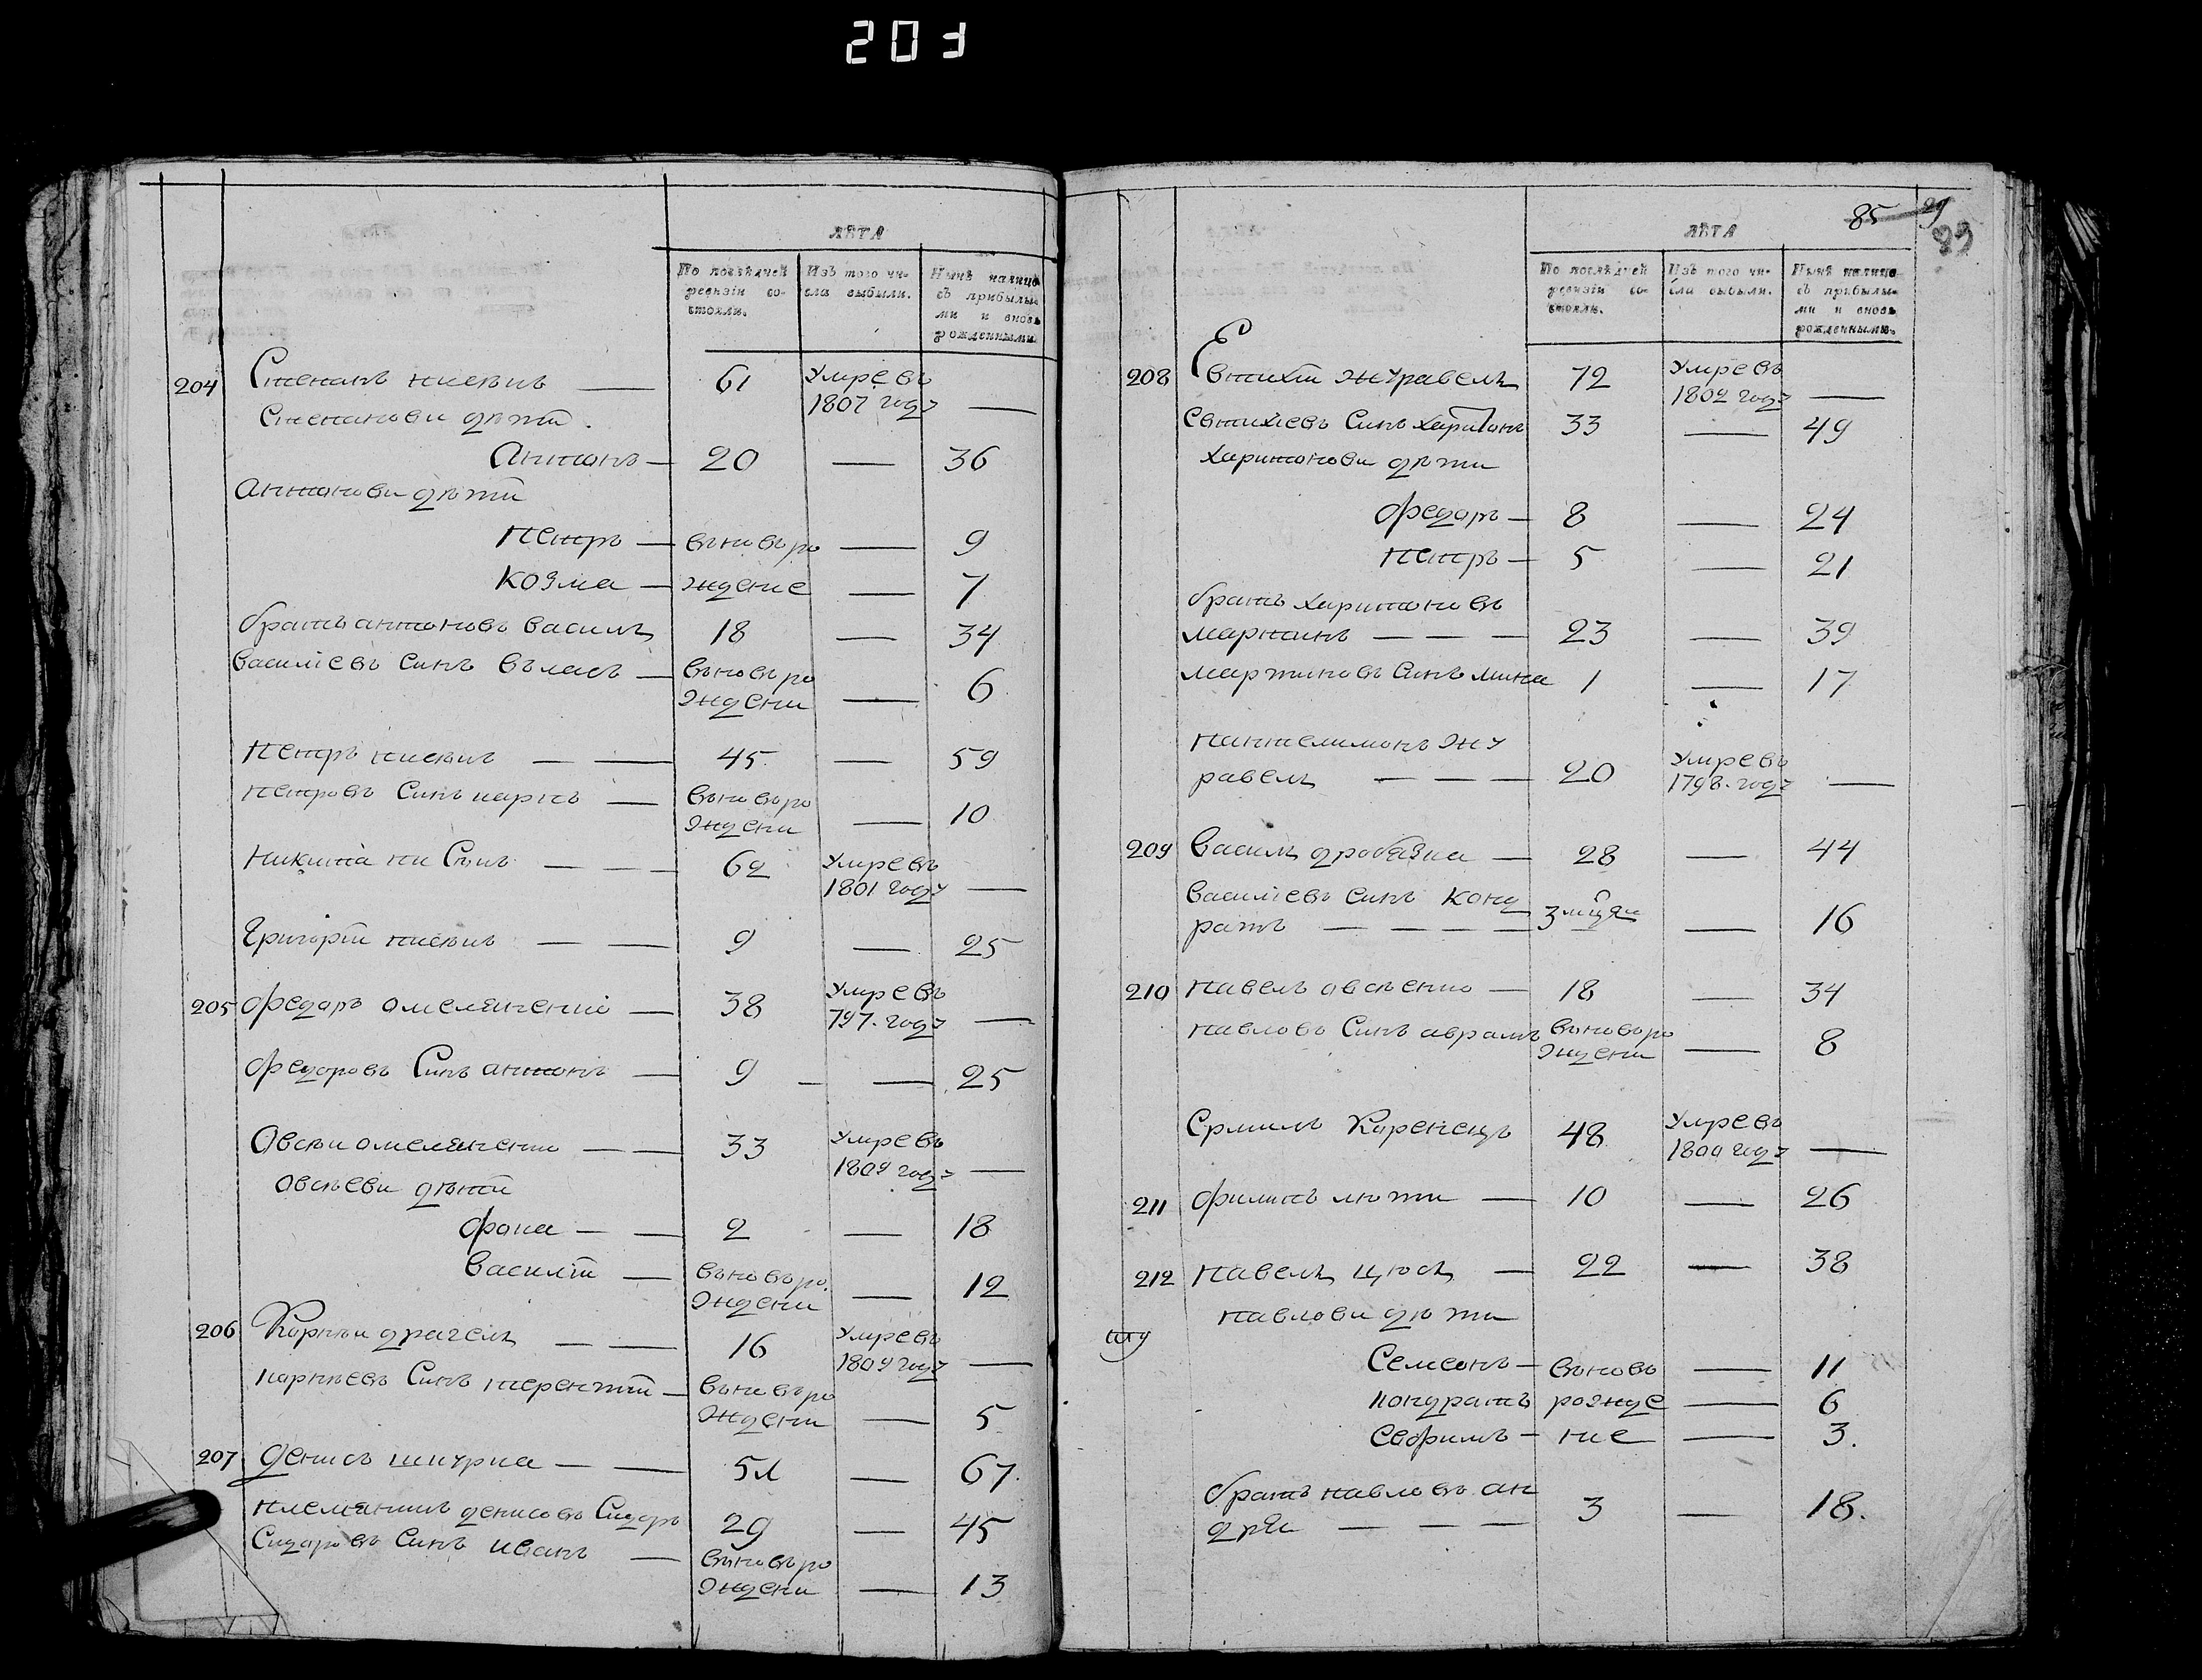 203
ЛѢТА
По послѣдней ревизіи состояли.
Изъ того числа выбыли.
Нынѣ налицо съ прибылыми и вновь рожденными.
204 Степанъ 61 Умре въ 1807 году —
Степанови дѣти
Антонъ — 20 — 36
Антонови дѣти
Петръ — вьновъро — 9
Козма — ждение — 7
братъ антоновъ василь 18 — 34
василіевъ синъ въласъ — вьновъро
ждени — 6
Петръ — 45 — 59
Петровъ Синъ карпъ — вьновъро
ждени — 10
Никита — 62 Умре въ 1801 году —
Григорій — 9 — 25
205 Федоръ омелянченко — 38 Умре въ 797. году —
Федоровъ Синъ антонъ — 9 — 25
Овсѣи омелянченко — 33 Умре въ 1809 году —
Овсѣеви дѣти
фока — 2 — 18
василій — вьновъро.
ждени — 12
206 Корнѣи драчель — 16 Умре въ 1809 году —
корнѣевъ Синъ терентій — вьновъро
ждени — 5
207 Денисъ шкурка — 51 — 67.
племянникъ денисовъ Сидоръ 29 — 45
Сидоровъ Синъ иванъ — вьновъро
ждени — 13
85 91
99
ЛѢТА
По послѣдней ревизіи состояли.
Изъ того числа выбыли.
Нынѣ налицо съ прибылыми и вновь рожденными.
208 Евтихій журавель 72 Умре въ 1802 году —
Евтихіевъ Синъ Харитонъ 33 — 49
Харитонови дѣти
Федоръ — 8 — 24
Петръ — 5 — 21
братъ харитоновъ
мартинъ — — — 23 — 39
мартиновъ Синъ мина 1 — 17
пантелимонъ жу
равель — — — 20 Умре въ 1798. году —
209 Василь дробязка — 28 — 44
василіевъ синъ Конд
ратъ — — — — 3 мця — 16
210 Павелъ овсѣенко — 18 — 34
павловъ Синъ аврамъ вьновъро
ждени — 8
Ермилъ Коренецъ 48 Умре въ 1800 году —
211 Филипъ люти — 10 — 26
212 Павелъ цюсь — 22 — 38
павлови дѣти
Семеонъ — вьновъ — 11
кондратъ рожде — 6
Евфимъ — ние — 3.
братъ павловъ ан
дрѣи — — — 3 — 18.